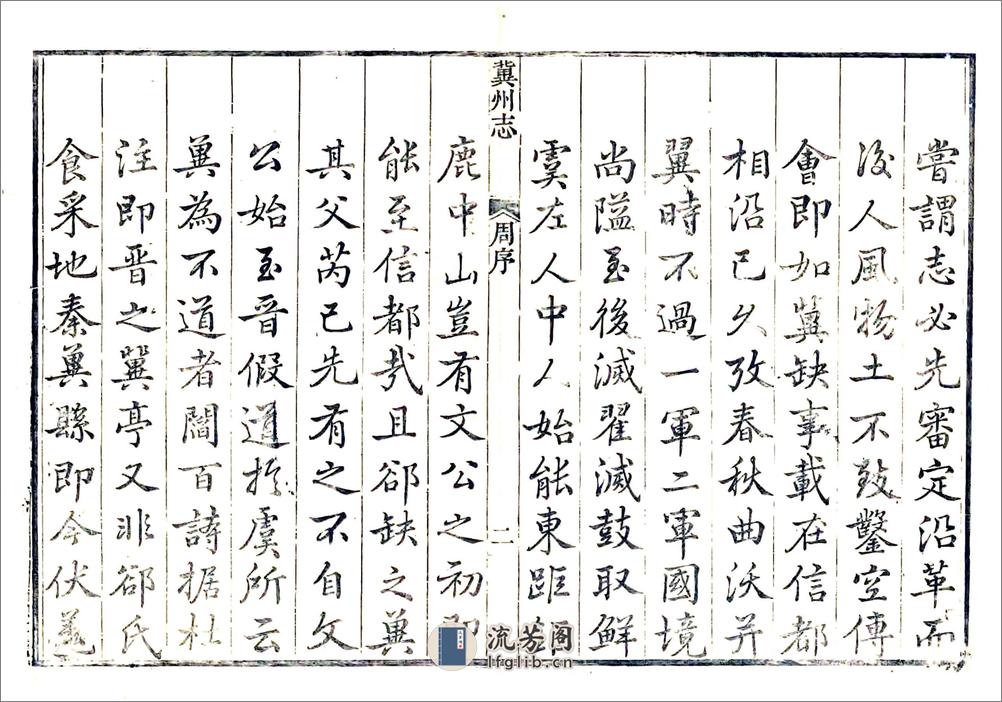 嘗謂志必先審定沿革而
後人風物土不致鑿空傳
會即如冀缺事載在信都
相沿已久攷春秋曲沃并
翼時不過一軍二軍國境
尚隘至後滅翟滅鼓取鮮
虞左人中人始能東距
冀州志
周序
二
鹿中山豈有文公之初即
能至信都㢤且郤缺之冀
其父芮已先有之不自文
公始至晉假道於虞所云
冀為不道者閻百詩据杜
注即晉之冀亭又非郤氏
食采地秦冀縣即今伏羌
流芳阁
lfglib.cn